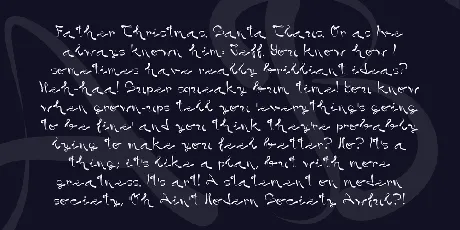 Father Christmas, Santa Claus. Or as I've
always known him: Jeff. You know how I
sometimes have really brilliant ideas?
Heh-haa! Super squeaky bum time! You know
when grown-ups tell you 'everything's going
to be fine' and you think they're probably
lying to make you feel better? No? It's a
thing; it's like a plan, but with more
greatness. It's art! A statement on modern
society, 'Oh Ain't Modern Society Awful?'!